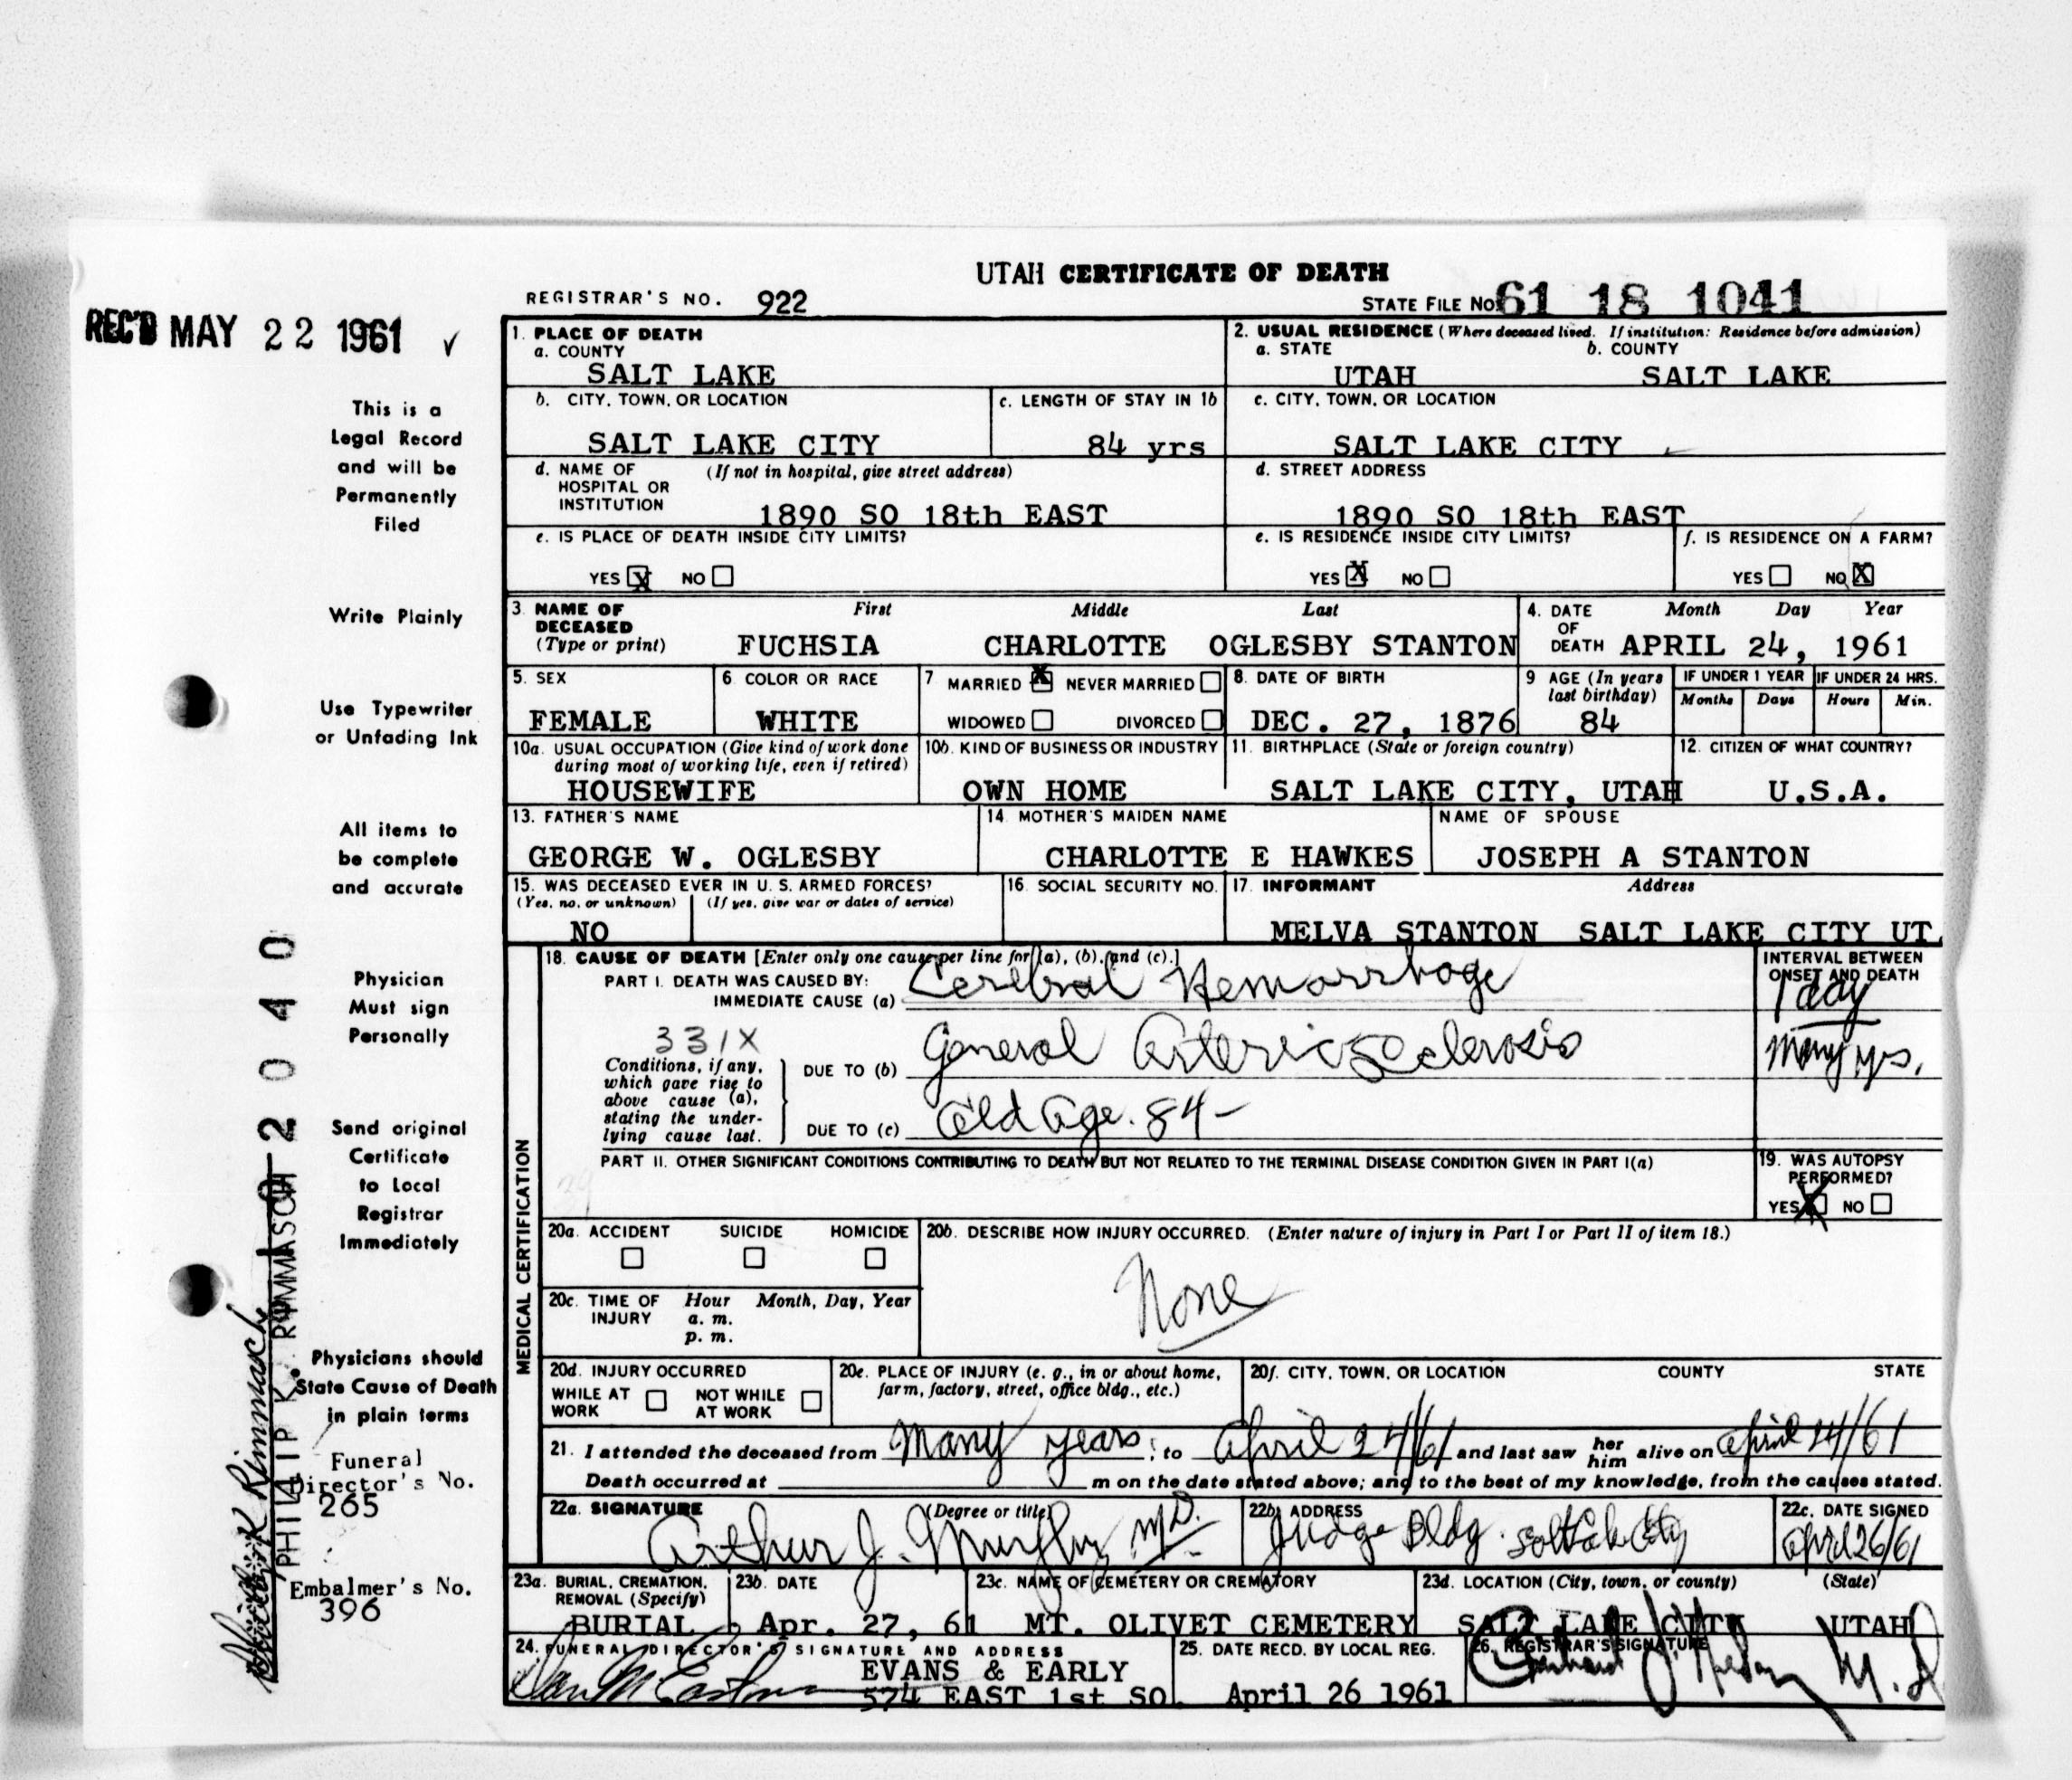 UTAH CERTIFICATE OF DEATH
REGISTRAR'S NO. 922
STATE FILE NO. 61 18 1041
REC'D MAY 22 1961 ✓
This is a
Legal Record
and will be
Permanently
Filed
Write Plainly
Use Typewriter
or Unfading Ink
All items to
be complete
and accurate
Physician
Must sign
Personally
Send original
Certificate
to Local
Registrar
Immediately
Physicians should
State Cause of Death
in plain terms
Funeral
Director's No.
265
Embalmer's No.
396
2040
PHILLIP K. RIMMASCH
K Rimmasch
1. PLACE OF DEATH
a. COUNTY
SALT LAKE
2. USUAL RESIDENCE (Where deceased lived. If institution: Residence before admission)
a. STATE b. COUNTY
UTAH SALT LAKE
b. CITY, TOWN, OR LOCATION
SALT LAKE CITY
c. LENGTH OF STAY IN 1b
84 yrs
c. CITY, TOWN, OR LOCATION
SALT LAKE CITY
d. NAME OF (If not in hospital, give street address)
HOSPITAL OR
INSTITUTION
1890 SO 18th EAST
d. STREET ADDRESS
1890 SO 18th EAST
e. IS PLACE OF DEATH INSIDE CITY LIMITS?
YES X NO
e. IS RESIDENCE INSIDE CITY LIMITS?
YES X NO
f. IS RESIDENCE ON A FARM?
YES NO X
3. NAME OF First Middle Last
DECEASED
(Type or print) FUCHSIA CHARLOTTE OGLESBY STANTON
4. DATE Month Day Year
OF
DEATH APRIL 24, 1961
5. SEX
FEMALE
6. COLOR OR RACE
WHITE
7. MARRIED X NEVER MARRIED
WIDOWED DIVORCED
8. DATE OF BIRTH
DEC. 27, 1876
9 AGE (In years
last birthday)
84
IF UNDER 1 YEAR IF UNDER 24 HRS.
Months Days Hours Min.
10a. USUAL OCCUPATION (Give kind of work done
during most of working life, even if retired)
HOUSEWIFE
10b. KIND OF BUSINESS OR INDUSTRY
OWN HOME
11. BIRTHPLACE (State or foreign country)
SALT LAKE CITY, UTAH
12. CITIZEN OF WHAT COUNTRY?
U.S.A.
13. FATHER'S NAME
GEORGE W. OGLESBY
14. MOTHER'S MAIDEN NAME
CHARLOTTE E HAWKES
NAME OF SPOUSE
JOSEPH A STANTON
15. WAS DECEASED EVER IN U. S. ARMED FORCES?
(Yes, no, or unknown) (If yes, give war or dates of service)
NO
16. SOCIAL SECURITY NO.
17. INFORMANT Address
MELVA STANTON SALT LAKE CITY UT.
MEDICAL CERTIFICATION
18. CAUSE OF DEATH [Enter only one cause per line for (a), (b), and (c).]
PART I. DEATH WAS CAUSED BY:
IMMEDIATE CAUSE (a) Cerebral Hemorrhage
INTERVAL BETWEEN
ONSET AND DEATH
1 day
331X
Conditions, if any,
which gave rise to
above cause (a),
stating the under-
lying cause last.
DUE TO (b) General Arteriosclerosis
many yrs.
DUE TO (c) Old Age. 84-
PART II. OTHER SIGNIFICANT CONDITIONS CONTRIBUTING TO DEATH BUT NOT RELATED TO THE TERMINAL DISEASE CONDITION GIVEN IN PART I(a)
19. WAS AUTOPSY
PERFORMED?
YES X NO
20a. ACCIDENT SUICIDE HOMICIDE
20b. DESCRIBE HOW INJURY OCCURRED. (Enter nature of injury in Part I or Part II of item 18.)
None
20c. TIME OF Hour Month, Day, Year
INJURY a. m.
p. m.
20d. INJURY OCCURRED
WHILE AT NOT WHILE
WORK AT WORK
20e. PLACE OF INJURY (e. g., in or about home,
farm, factory, street, office bldg., etc.)
20f. CITY, TOWN, OR LOCATION COUNTY STATE
21. I attended the deceased from Many years, to April 24/61 and last saw her him alive on April 24/61
Death occurred at m on the date stated above; and to the best of my knowledge, from the causes stated.
22a. SIGNATURE (Degree or title)
Arthur J. Murphy M.D.
22b. ADDRESS
Judge Bldg. Salt Lake City
22c. DATE SIGNED
April 26/61
23a. BURIAL, CREMATION,
REMOVAL (Specify)
BURIAL
23b. DATE
Apr. 27, 61
23c. NAME OF CEMETERY OR CREMATORY
MT. OLIVET CEMETERY
23d. LOCATION (City, town, or county) (State)
SALT LAKE CITY UTAH
24. FUNERAL DIRECTOR'S SIGNATURE AND ADDRESS
EVANS & EARLY
574 EAST 1st SO.
25. DATE RECD. BY LOCAL REG.
April 26 1961
26. REGISTRAR'S SIGNATURE
M.D